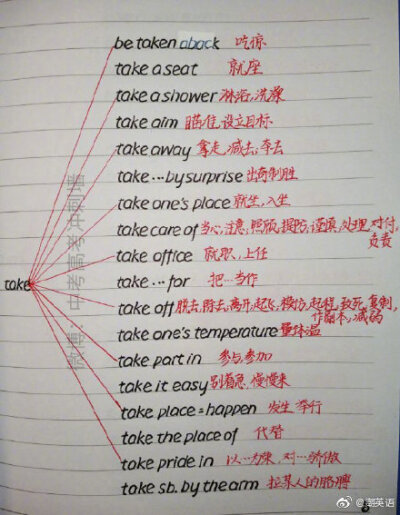 be taken aback 吃惊
take a seat 就座
take a shower 淋浴,洗澡
take aim 瞄准,设立目标
take away 拿走,减去,夺去
take…by surprise 出奇制胜
take one's place 就坐,入坐
take care of 当心,注意,照顾,提防,谨慎,处理,对付,
负责
take office 就职,上任
take…for 把…当作
take
take off 脱去,除去,离开,起飞,模仿,起程,致死,复制,
作副本,减弱
take one's temperature 量体温
take part in 参与,参加
take it easy 别着急,慢慢来
take place=happen 发生,举行
take the place of 代替
take pride in 以…为荣,对…骄傲
take sb. by the arm 拉某人的胳膊
微博:中考高考冲刺墙
@潮英语